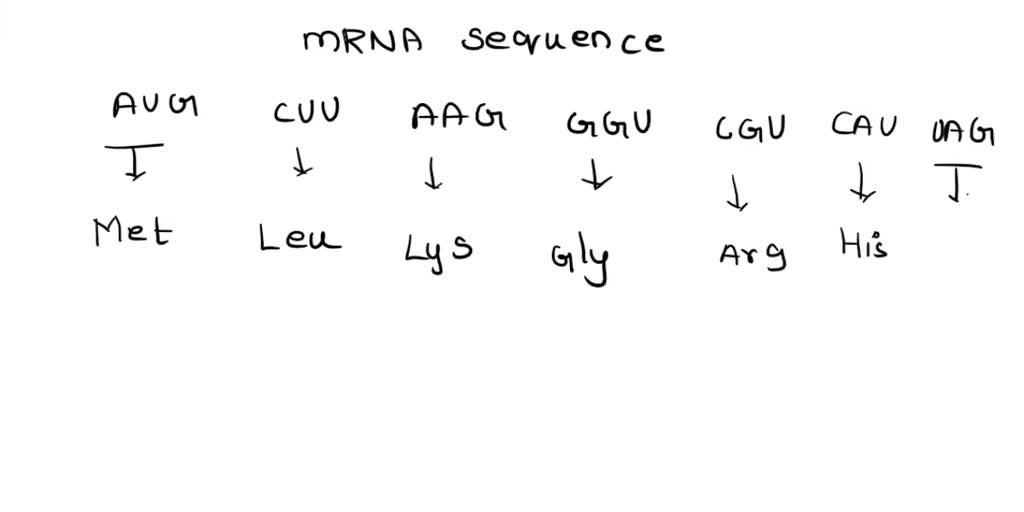 mRNA sequence
AUG CUU AAG GGU CGU CAU UAG
Met Leu Lys Gly Arg His